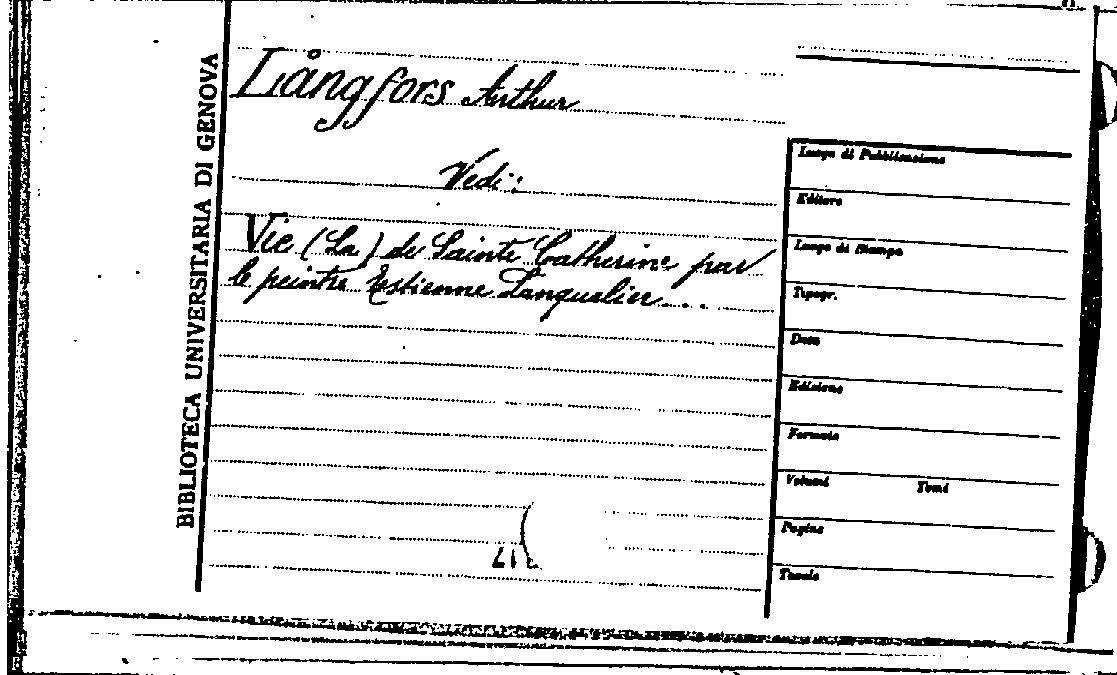 BIBLIOTECA UNIVERSITARIA DI GENOVA
Långfors Arthur
Vedi:
Vie (La) de Sainte Catherine par
le peintre Estienne Lanquelier...
Luogo di Pubblicazione
Editore
Luogo di Stampa
Tipogr.
Data
Edizione
Formato
Volumi Tomi
Pagine
Tavole